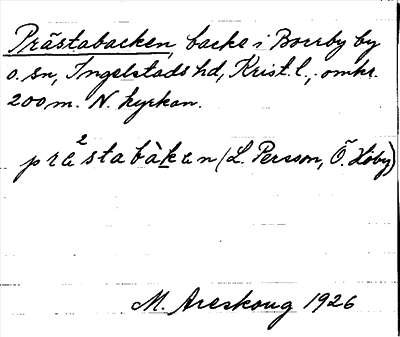 Prästabacken, backe i Borrby by
o. sn, Ingelstads hd, Krist. l., omkr.
200 m. N. kyrkan.
præ²stabàkɐn (L. Persson, Ö. Hoby)
M. Areskoug 1926